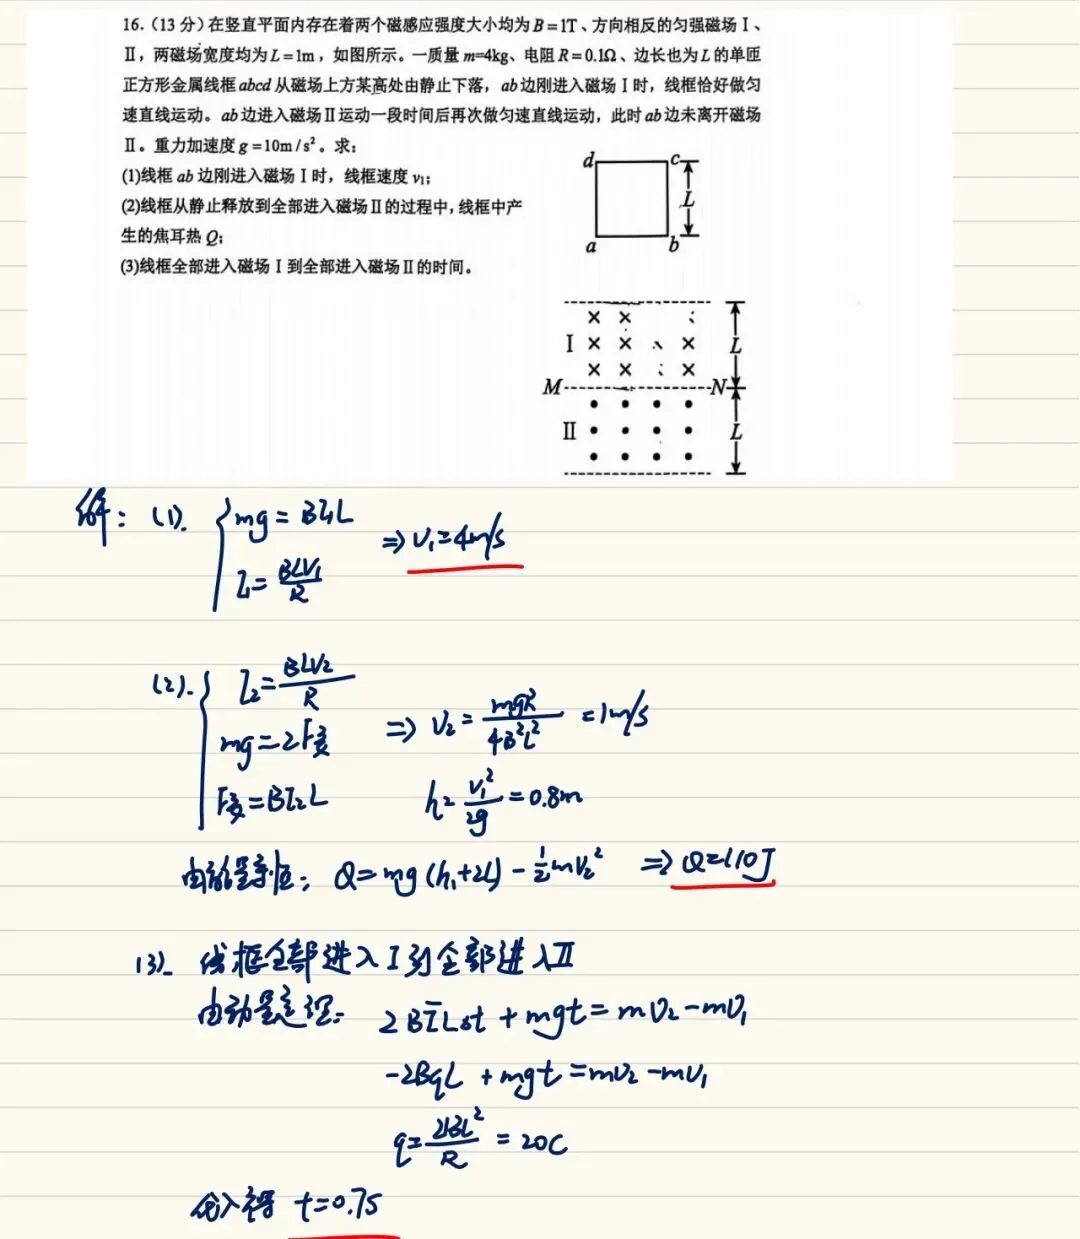 16.（13 分）在竖直平面内存在着两个磁感应强度大小均为 B=1T、方向相反的匀强磁场 I、
II，两磁场宽度均为 L=1m，如图所示。一质量 m=4kg、电阻 R=0.1Ω、边长也为 L 的单匝
正方形金属线框 abcd 从磁场上方某高处由静止下落，ab 边刚进入磁场 I 时，线框恰好做匀
速直线运动。ab 边进入磁场 II 运动一段时间后再次做匀速直线运动，此时 ab 边未离开磁场
II。重力加速度 g=10m/s²。求：
(1)线框 ab 边刚进入磁场 I 时，线框速度 v₁；
(2)线框从静止释放到全部进入磁场 II 的过程中，线框中产
生的焦耳热 Q；
(3)线框全部进入磁场 I 到全部进入磁场 II 的时间。
d c
L
a b
× ×
I × × ×
× × ×
L
M N
• • • •
II • • • •
• • • •
L
解：(1). mg=BI₁L
I₁=BLV₁/R
⇒ V₁=4m/s
(2). I₂=BLV₂/R
mg=2F安
F安=BI₂L
⇒ V₂=mgR/4B²L²=1m/s
h=V₁²/2g=0.8m
由能量守恒：Q=mg(h₁+2L)-½mV₂² ⇒ Q=110J
(3). 线框全部进入I到全部进入II
由动量定理： 2BĪLΔt+mgt=mV₂-mV₁
-2BqL+mgt=mV₂-mV₁
q=2BL²/R=20C
代入得 t=0.7s